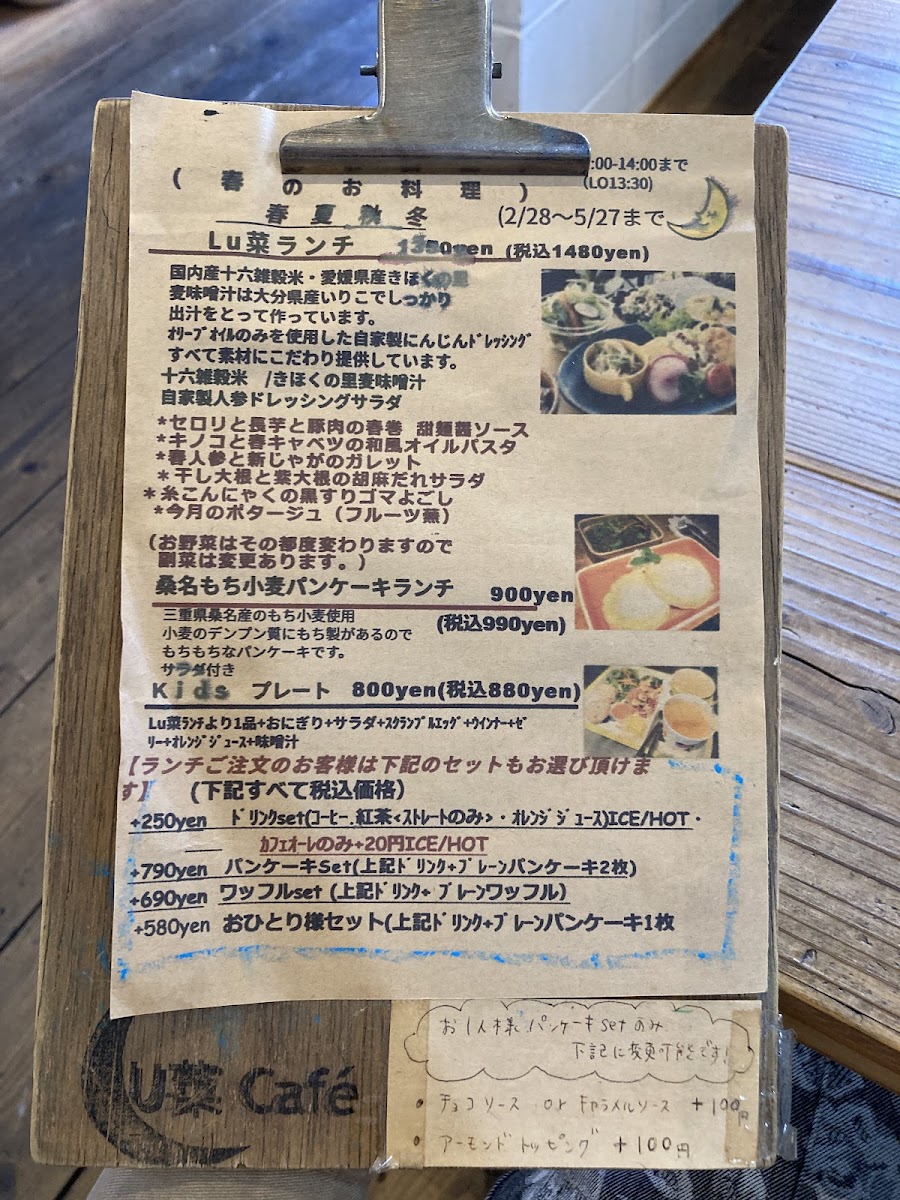 :00-14:00まで
(LO13:30)
(春のお料理)
春夏秋冬
(2/28〜5/27まで
Lu菜ランチ 1350yen (税込1480yen)
国内産十六雑穀米・愛媛県産きほくの里
麦味噌汁は大分県産いりこでしっかり
出汁をとって作っています。
ｵﾘｰﾌﾞｵｲﾙのみを使用した自家製にんじんﾄﾞﾚｯｼﾝｸﾞ
すべて素材にこだわり提供しています。
十六雑穀米 /きほくの里麦味噌汁
自家製人参ドレッシングサラダ
*セロリと長芋と豚肉の春巻 甜麺醤ソース
*キノコと春キャベツの和風オイルパスタ
*春人参と新じゃがのガレット
*干し大根と紫大根の胡麻だれサラダ
*糸こんにゃくの黒すりゴマよごし
*今月のポタージュ（フルーツ蕪）
(お野菜はその都度変わりますので
副菜は変更あります。)
桑名もち小麦パンケーキランチ 900yen
三重県桑名産のもち小麦使用
(税込990yen)
小麦のデンプン質にもち製があるので
もちもちなパンケーキです。
サラダ付き
Kids プレート 800yen(税込880yen)
Lu菜ﾗﾝﾁより1品+おにぎり+サラダ+ｽｸﾗﾝﾌﾞﾙｴｯｸﾞ+ｳｲﾝﾅｰ+ｾﾞ
ﾘｰ+ｵﾚﾝｼﾞｼﾞｭｰｽ+味噌汁
【ランチご注文のお客様は下記のセットもお選び頂けま
す】 (下記すべて税込価格)
+250yen ﾄﾞﾘﾝｸset(ｺｰﾋｰ.紅茶<ｽﾄﾚｰﾄのみ>・ｵﾚﾝｼﾞｼﾞｭｰｽ)ICE/HOT・
ｶﾌｪｵｰﾚのみ+20円ICE/HOT
+790yen パンケーキSet(上記ﾄﾞﾘﾝｸ+ﾌﾟﾚｰﾝパンケーキ2枚)
+690yen ワッフルset (上記ﾄﾞﾘﾝｸ+ ﾌﾟﾚｰﾝワッフル)
+580yen おひとり様セット(上記ﾄﾞﾘﾝｸ+ﾌﾟﾚｰﾝパンケーキ1枚
お1人様 パンケーキsetのみ
下記に変更可能です!
• チョコソース or キャラメルソース +100円
• アーモンドトッピング +100円
LU菜 Café